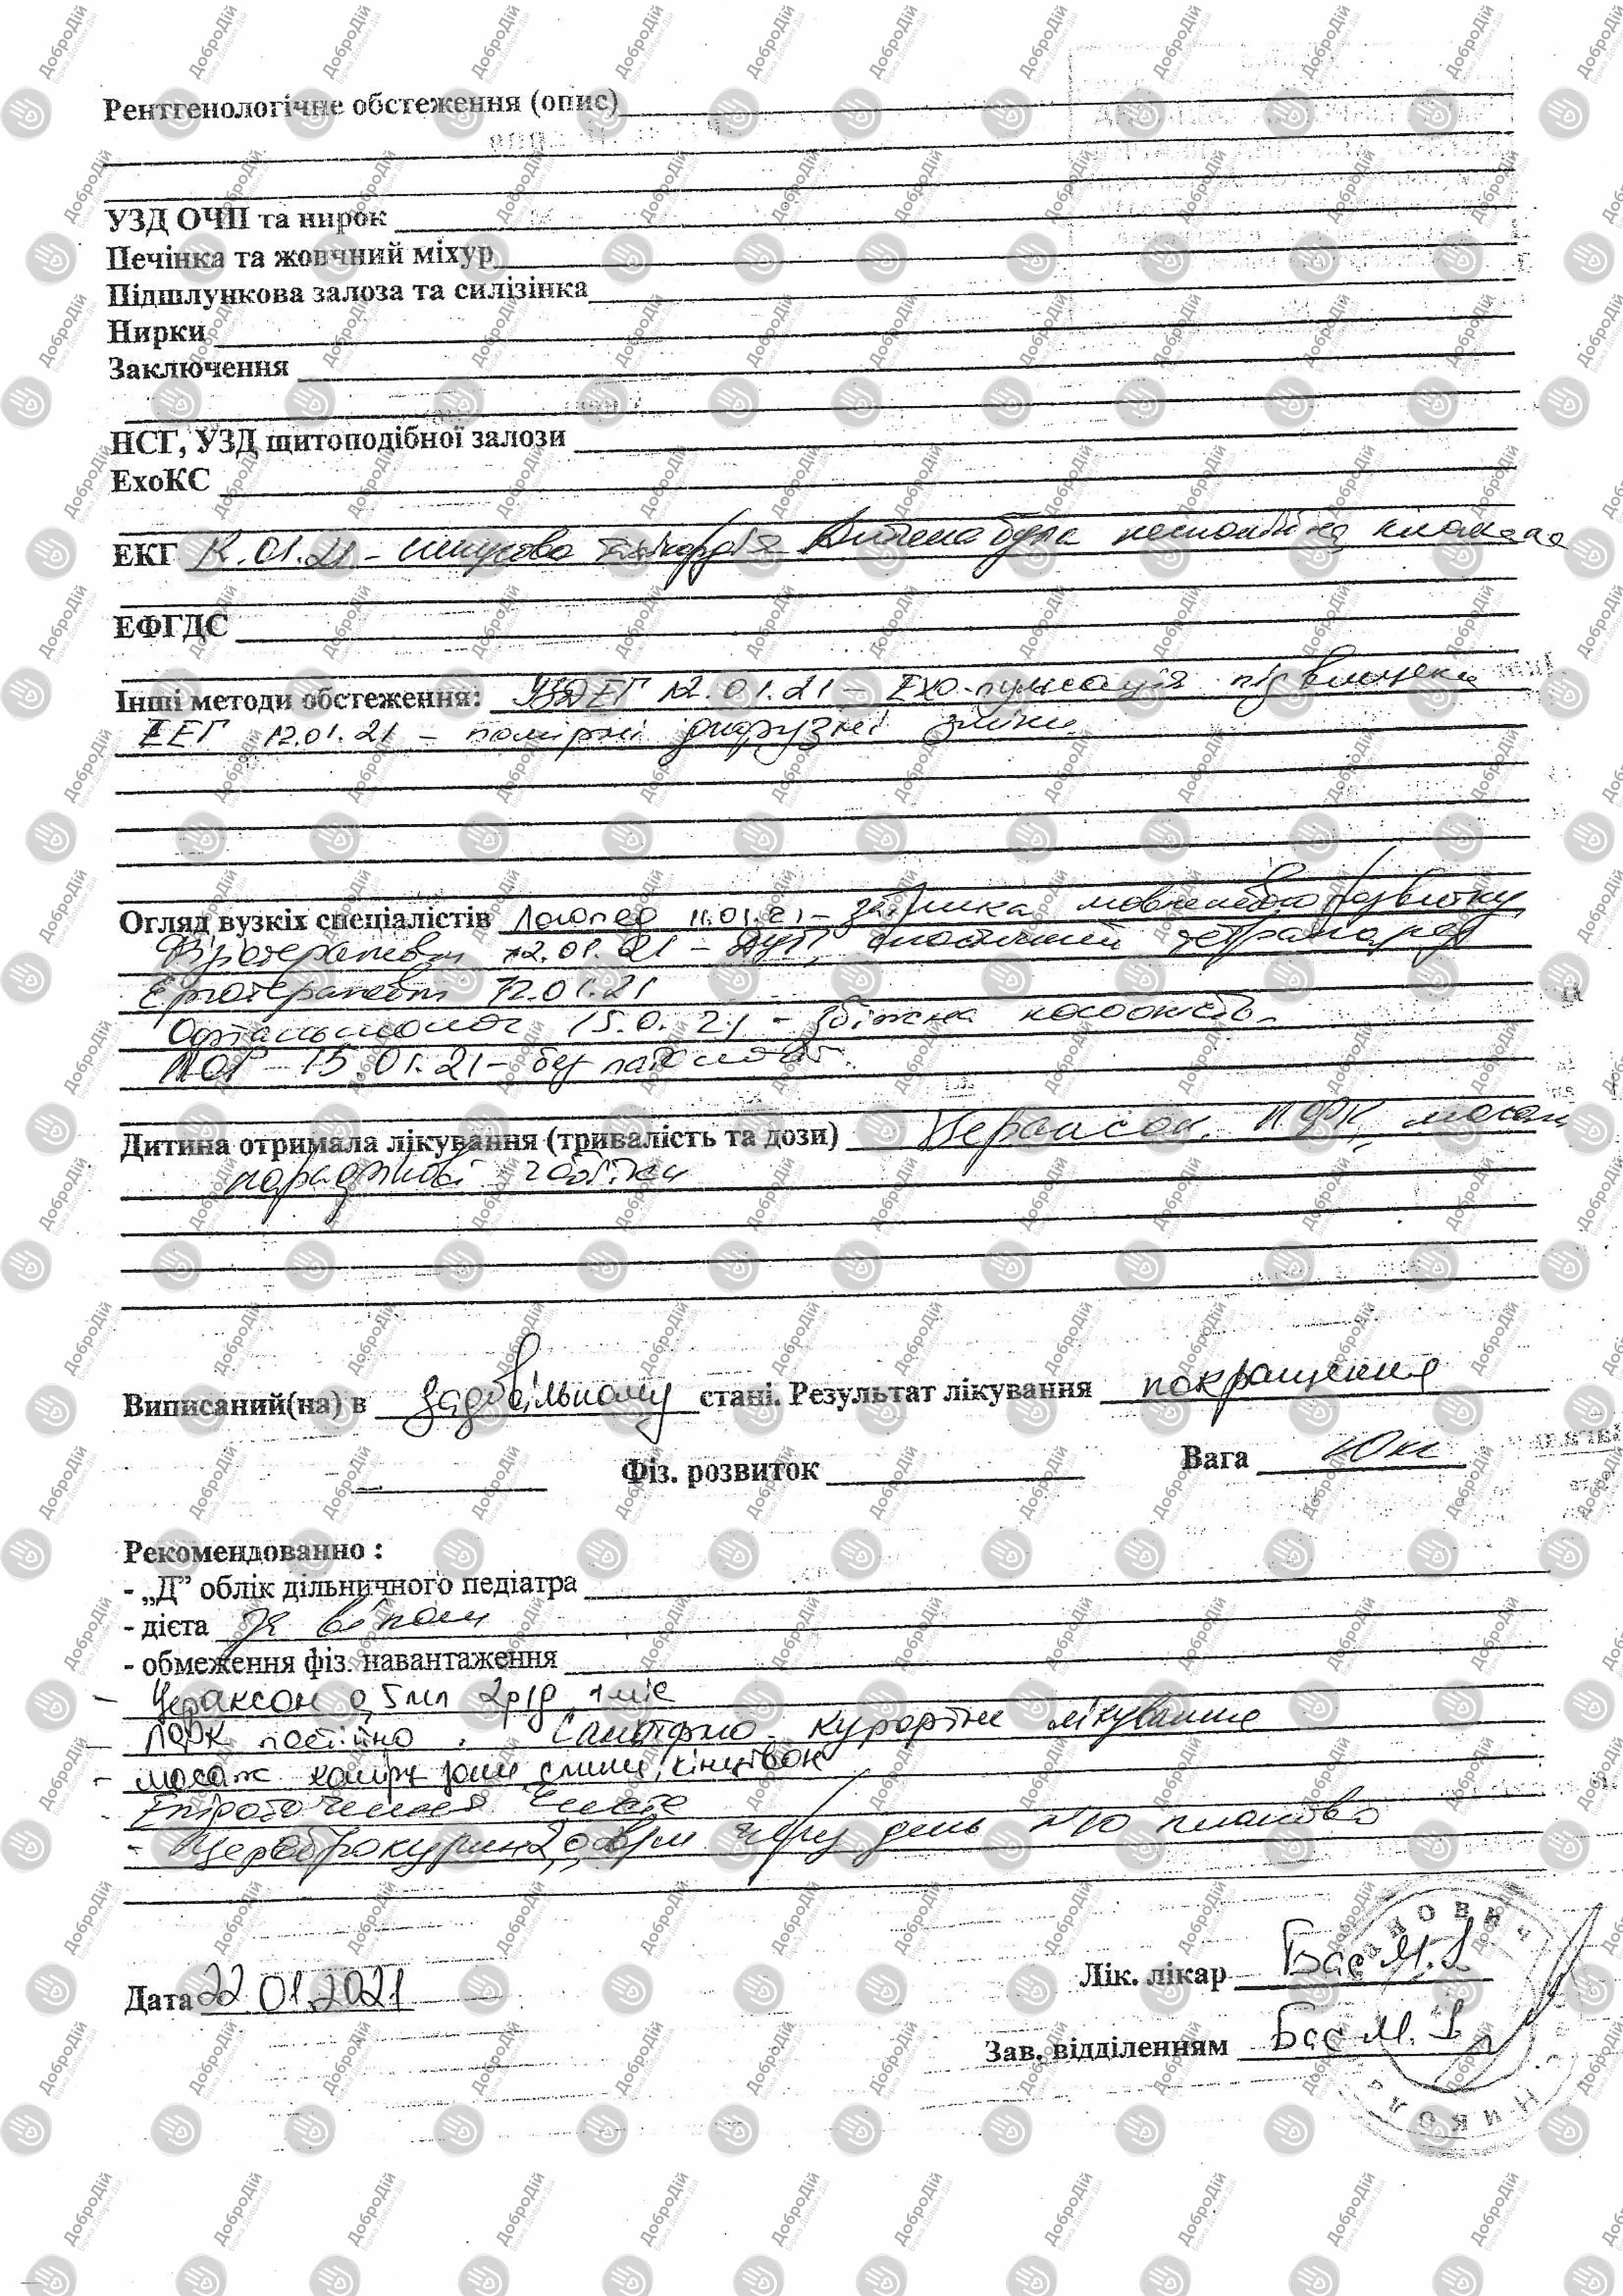 Рентгенологічне обстеження (опис)
УЗД ОЧП та нирок
Печінка та жовчний міхур
Підшлункова залоза та силізінка
Нирки
Заключення
НСГ, УЗД щитоподібної залози
ЕхоКС
ЕКГ 12.01.21 - синусова тахікардія Дитина була неспокійна, плакала
ЕФГДС
Інші методи обстеження: УЗДЕГ 12.01.21 - Ехо-пульсація підвищена
ЕЕГ 12.01.21 - помірні дифузні зміни
Огляд вузкіх спеціалістів Логопед 11.01.21 - затримка мовленевого розвитку
Фізотерапевт 12.01.21 - ДЦП, спастичний тетрапарез
Ерготерапевт 12.01.21
Офтальмолог 15.0.21 - збіжна косоокість.
ЛОР - 15.01.21 - без патології.
Дитина отримала лікування (тривалість та дози) Цераксон, ЛФК, масаж
парафінові чобіжки
Виписаний(на) в задовільному стані. Результат лікування покращення
Фіз. розвиток Вага 10кг
Рекомендованно :
- „Д” облік дільничного педіатра
- дієта за віком
- обмеження фіз. навантаження
- Цераксон 0,5мл 2р/д 1міс
- ЛФК постійно . Санаторно-курортне лікування
- масаж комірц зони спини, кінцівок
-
- Цереброкурин 2,0 в/м через день №10 планово
Дата 22.01.2021
Лік. лікар Бас М.І.
Зав. відділенням Бас М.І.
ДоброДій
Біржа Добрих Дій